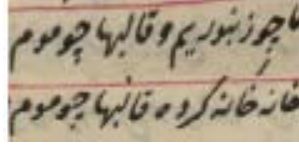 ما چو زنبوریم و قالبها چو موم
خانه خانه کرده قالبها چو موم